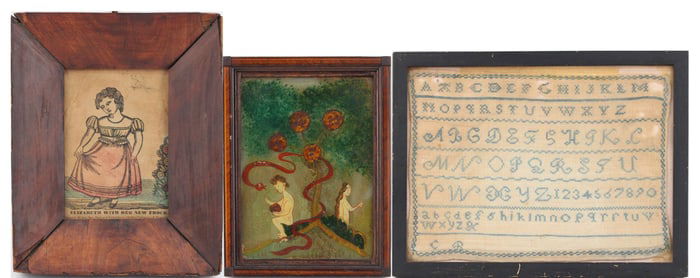 ELIZABETH WITH HER NEW FROCK
A B C D E F G H I J K L M
N O P Q R S T U V W X Y Z
A B C D E F G H I K L
M N O P Q R S T U
V W X Y Z 1 2 3 4 5 6 7 8 9 0
a b c d e f g h i k l m n o p q r s t u v
w x y z &
C B